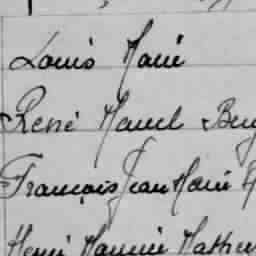 Louis Marie
René Marcel
François Jean Marie
Henri Maurice